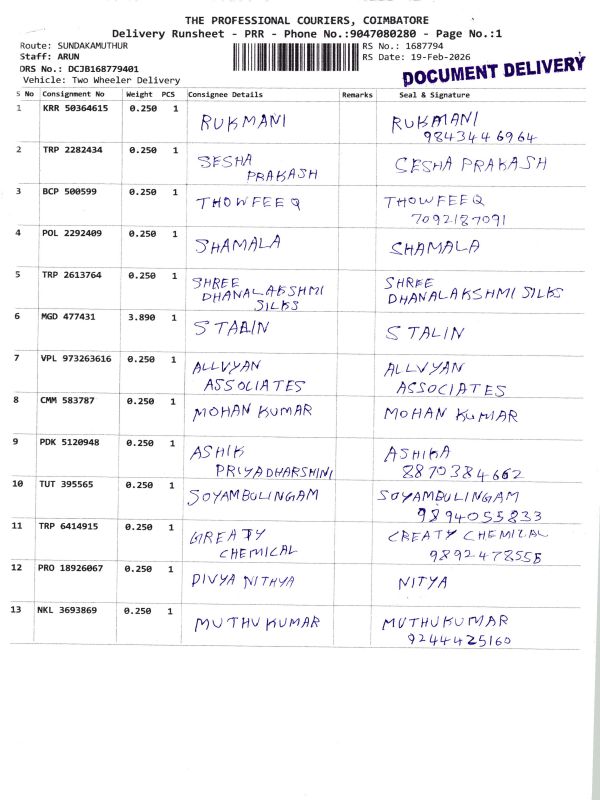 THE PROFESSIONAL COURIERS, COIMBATORE
Delivery Runsheet - PRR - Phone No.:9047080280 - Page No.:1
Route: SUNDAKAMUTHUR RS No.: 1687794
Staff: ARUN RS Date: 19-Feb-2026
DRS No.: DCJB168779401
DOCUMENT DELIVERY
Vehicle: Two Wheeler Delivery
S No Consignment No Weight PCS Consignee Details Remarks Seal & Signature
1 KRR 50364615 0.250 1 RUKMANI RUKMANI
9843446964
2 TRP 2282434 0.250 1 SESHA SESHA PRAKASH
PRAKASH
3 BCP 500599 0.250 1 THOWFEEQ THOWFEEQ
7092187091
4 POL 2292409 0.250 1 SHAMALA SHAMALA
5 TRP 2613764 0.250 1 SHREE SHREE
DHANALAKSHMI DHANALAKSHMI SILKS
SILKS
6 MGD 477431 3.890 1 STALIN STALIN
7 VPL 973263616 0.250 1 ALLVYAN ALLVYAN
ASSOCIATES ASSOCIATES
8 CMM 583787 0.250 1 MOHAN KUMAR MOHAN KUMAR
9 PDK 5120948 0.250 1 ASHIK ASHIKA
PRIYADHARSHINI 8870384662
10 TUT 395565 0.250 1 SOYAMBULINGAM SOYAMBULINGAM
9894055833
11 TRP 6414915 0.250 1 GREATY CREATY CHEMICAL
CHEMICAL 9892478558
12 PRO 18926067 0.250 1 DIVYA NITHYA NITYA
13 NKL 3693869 0.250 1 MUTHU KUMAR MUTHUKUMAR
9244425160